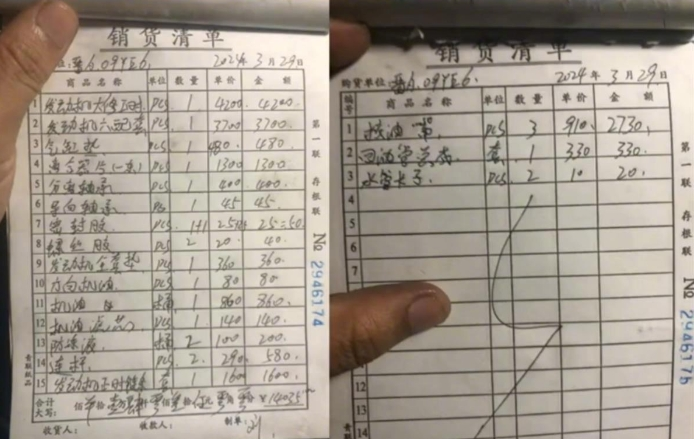 销货清单
2024年3月29日
商品名称 单位 数量 单价 金额
1 发动机大修包 pcs 1 4200 4200.
2 发动机六配套 pcs 1 3700 3700.
3 气缸垫 pcs 1 480. 480.
4 离合器片(一套) pcs 1 1300 1300.
5 分离轴承 pcs 1 400 400.
6 导向轴承 pcs 1 45 45.
7 密封胶 pcs. 1+1
8 螺丝胶 pcs 2 20. 40.
9 发动机全套垫 pcs 1 360 360.
10 方向机油 pcs 1 80 80.
11 机油 桶 1 860 860.
12 机油滤芯 pcs 1 140 140.
13 防冻液 桶 2 100 200.
14 连杆 pcs. 2. 290. 580.
15 发动机正时链条 套 1 1600 1600.
合计
大写: ¥14035
收货人: 收款人: 制单:
第一联 存根联
№ 2946174
销货清单
购货单位: 晋A.09YE6. 2024年3月29日
编号 商品名称 单位 数量 单价 金额
1 pcs 3 910. 2730.
2 回油管总成 套. 1 330 330.
3 水管卡子 pcs. 2 10 20.
4
5
6
7
11
12
13
14
第一联 存根联
№ 2946175